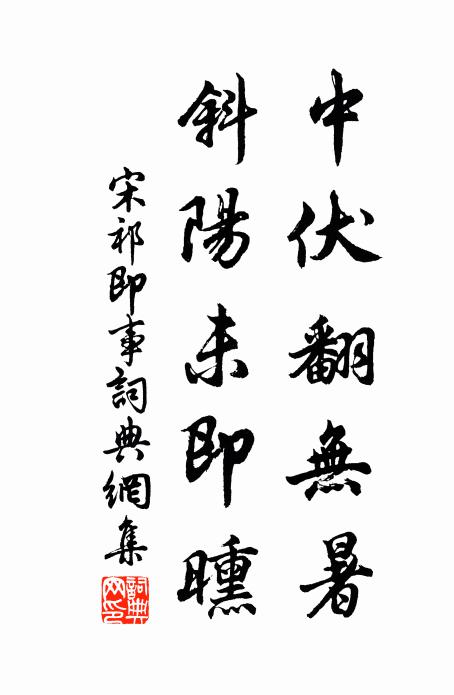 中伏翻無暑
斜陽未即曛
宋祁即事詞典網集
詞典网印